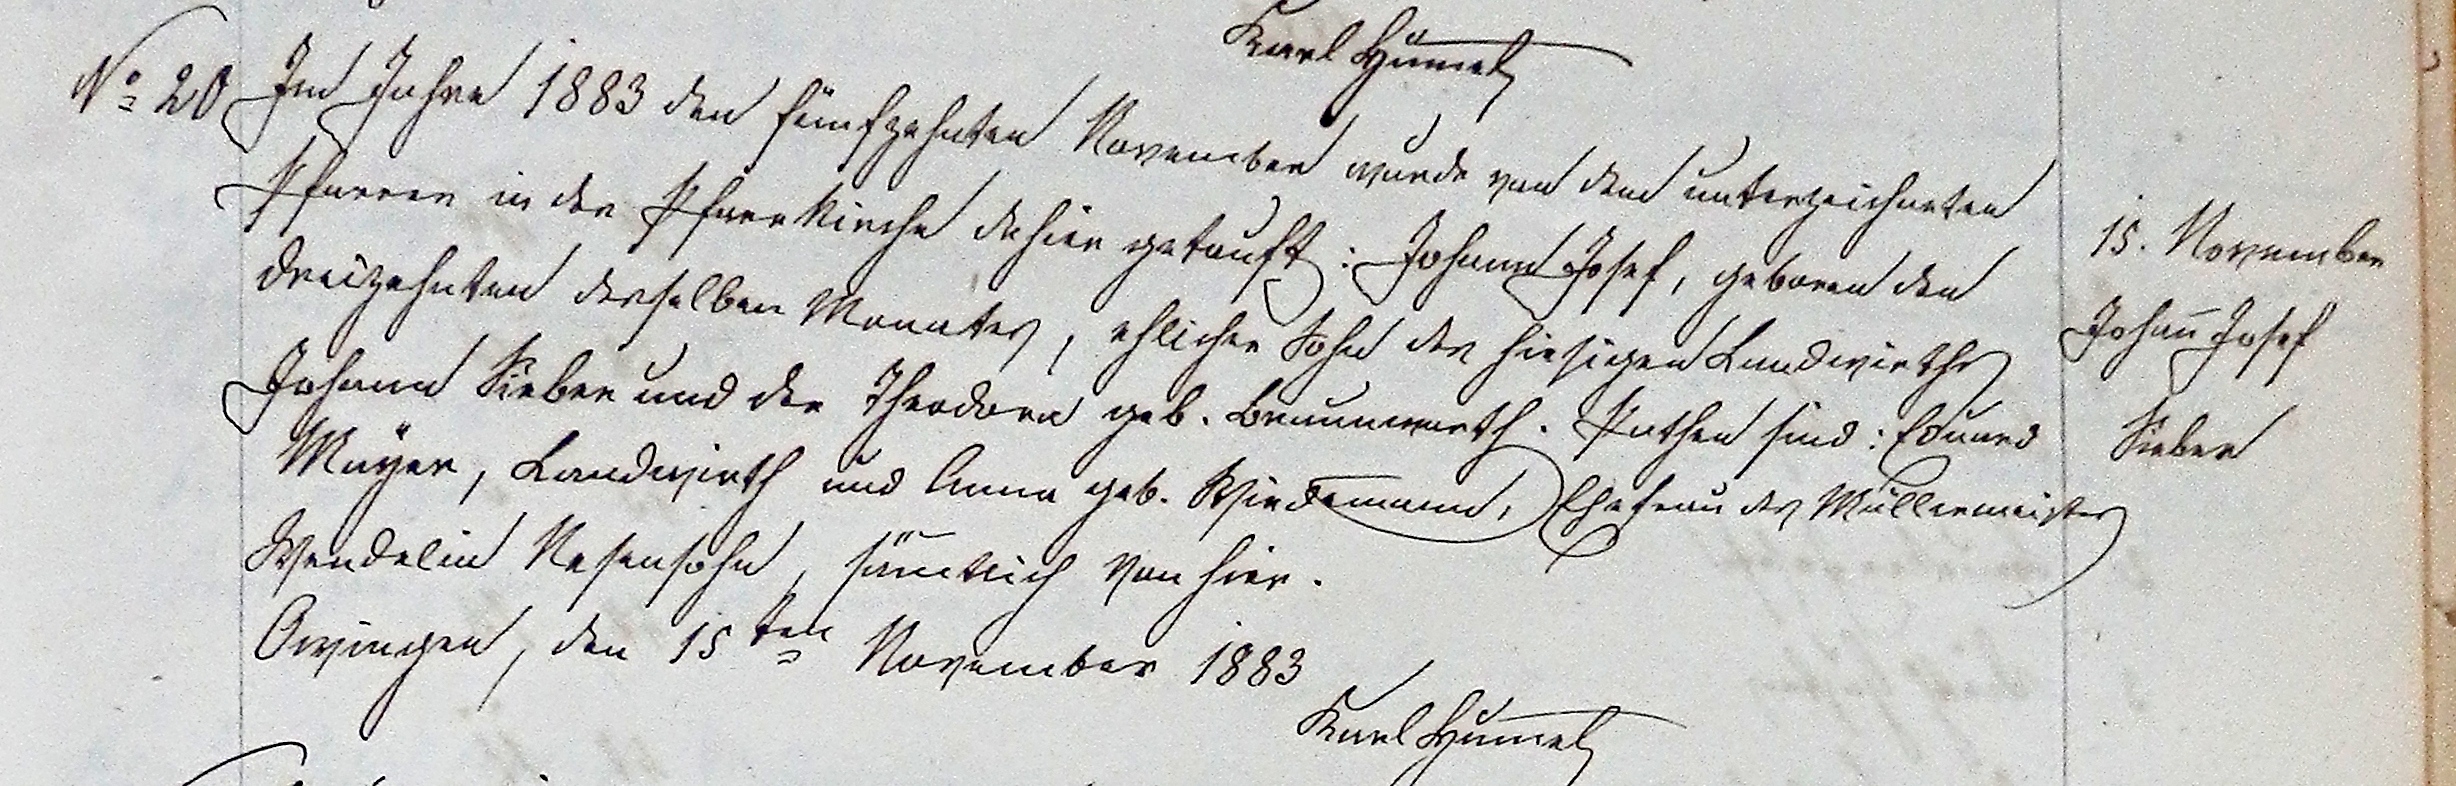 Karl Hum̅el
No 20 Im Jahre 1883 den fünfzehnten November wurde von dem unterzeichneten
Pfarrer in der Pfarrkirche dahier getauft: Johann Josef, geboren den
dreizehnten desselben Monates, ehlicher Sohn des hiesigen Landwirths
Johann Sieber und der Theodora geb. Braunwarth. Pathen sind: Eduard
Mayer, Landwirth und Anna geb. Wiedemann, Ehefrau des Müllermeisters
Wendelin Nesensohn, säm̅tlich von hier.
Owingen, den 15ten November 1883
Karl Hum̅el
15. November
Johan̅ Josef
Sieber